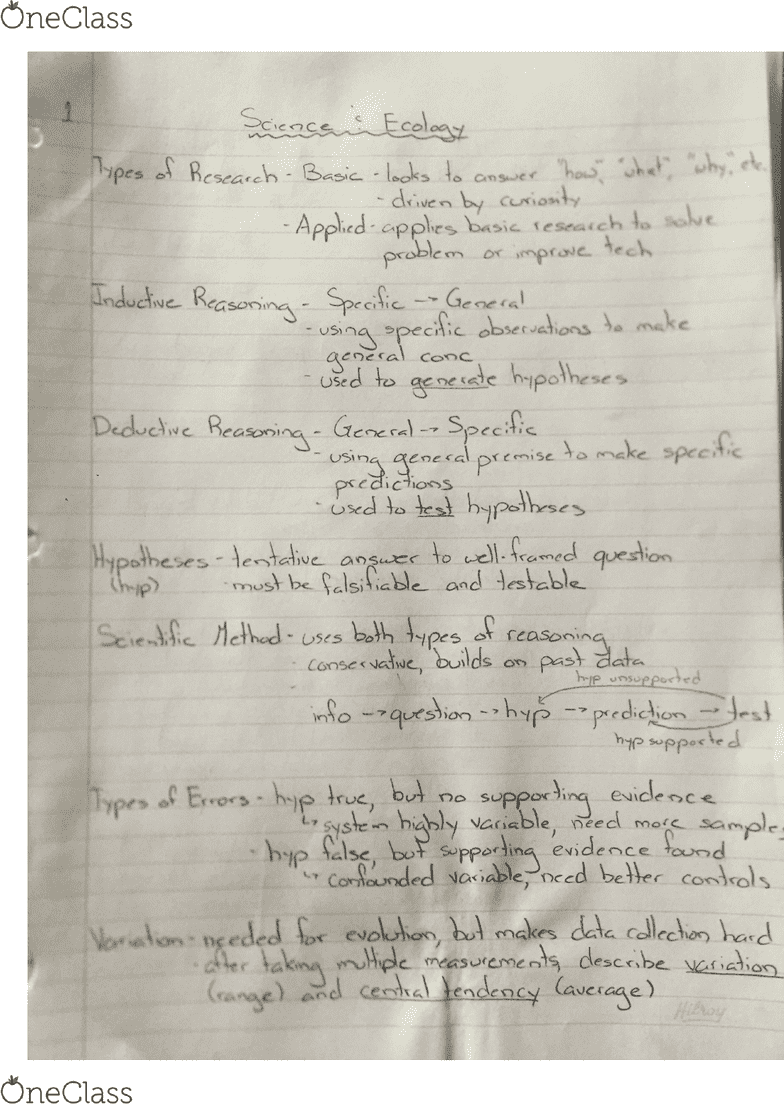 OneClass
1
Science & Ecology
Types of Research - Basic - looks to answer "how", "what", "why", etc.
- driven by curiosity
- Applied - applies basic research to solve
problem or improve tech
Inductive Reasoning - Specific → General
- using specific observations to make
general conc
- used to generate hypotheses
Deductive Reasoning - General → Specific
- using general premise to make specific
predictions
- used to test hypotheses
Hypotheses - tentative answer to well-framed question
(hyp) - must be falsifiable and testable
Scientific Method - uses both types of reasoning
- conservative, builds on past data
hyp unsupported
info → question → hyp → prediction → test
hyp supported
Types of Errors - hyp true, but no supporting evidence
↳ system highly variable, need more samples
- hyp false, but supporting evidence found
↳ confounded variable, need better controls
Variation - needed for evolution, but makes data collection hard
- after taking multiple measurements, describe variation
(range) and central tendency (average)
Hilroy
OneClass